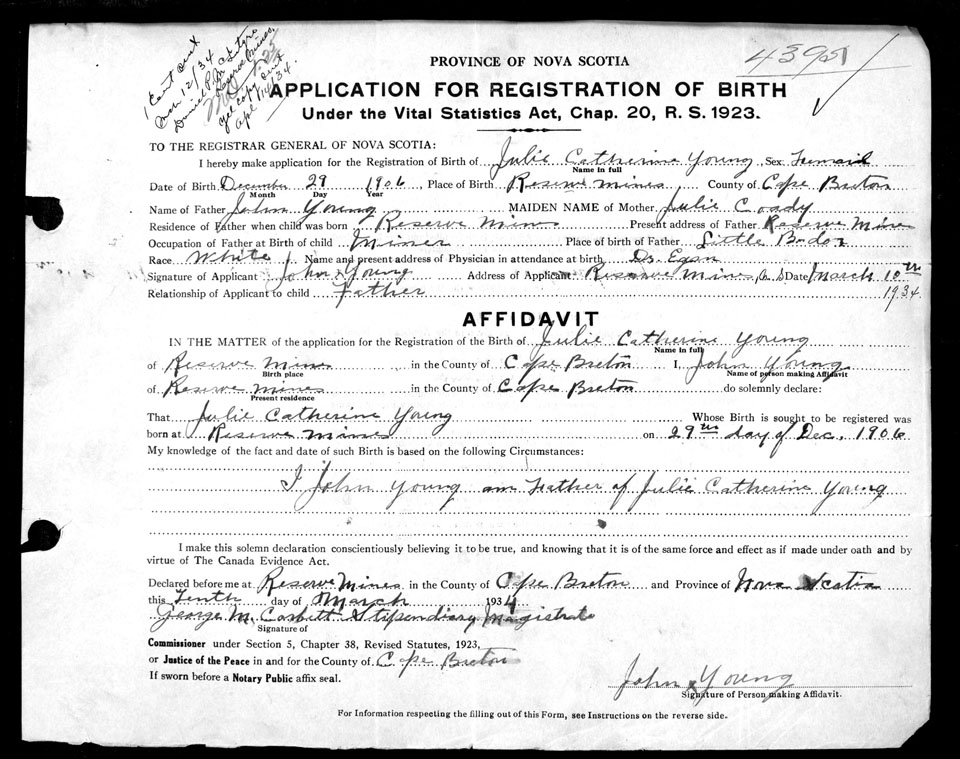 1 Cert sent
Mar 12/34
Daniel P. McIntyre
Reserve Mines
Apl 14/34
4395
PROVINCE OF NOVA SCOTIA
APPLICATION FOR REGISTRATION OF BIRTH
Under the Vital Statistics Act, Chap. 20, R. S. 1923.
TO THE REGISTRAR GENERAL OF NOVA SCOTIA:
I hereby make application for the Registration of Birth of Julie Catherine Young Sex Femail
Name in full
Date of Birth December 29 1906 Place of Birth Reserve Mines County of Cape Breton
Month Day Year
Name of Father John Young MAIDEN NAME of Mother Julie Coady
Residence of Father when child was born Reserve Mines Present address of Father Reserve Mines
Occupation of Father at Birth of child Miner Place of birth of Father Little Bador
Race White Name and present address of Physician in attendance at birth Dr. Egan
Signature of Applicant John Young Address of Applicant Reserve Mines Date March 10th
Relationship of Applicant to child Father 1934
AFFIDAVIT
IN THE MATTER of the application for the Registration of the Birth of Julie Catherine Young
Name in full
of Reserve Mines in the County of Cape Breton I, John Young
Birth place Name of person making Affidavit
of Reserve Mines in the County of Cape Breton do solemnly declare:
Present residence
That Julie Catherine Young Whose Birth is sought to be registered was
born at Reserve Mines on 29th day of Dec, 1906
My knowledge of the fact and date of such Birth is based on the following Circumstances:
I John Young am Father of Julie Catherine Young
I make this solemn declaration conscientiously believing it to be true, and knowing that it is of the same force and effect as if made under oath and by
virtue of The Canada Evidence Act.
Declared before me at Reserve Mines in the County of Cape Breton and Province of Nova Scotia
this Tenth day of March 1934
George M. Corbett Stipendiary Magistrate
Signature of
Commissioner under Section 5, Chapter 38, Revised Statutes, 1923,
or Justice of the Peace in and for the County of Cape Breton
If sworn before a Notary Public affix seal.
John Young
Signature of Person making Affidavit.
For Information respecting the filling out of this Form, see Instructions on the reverse side.